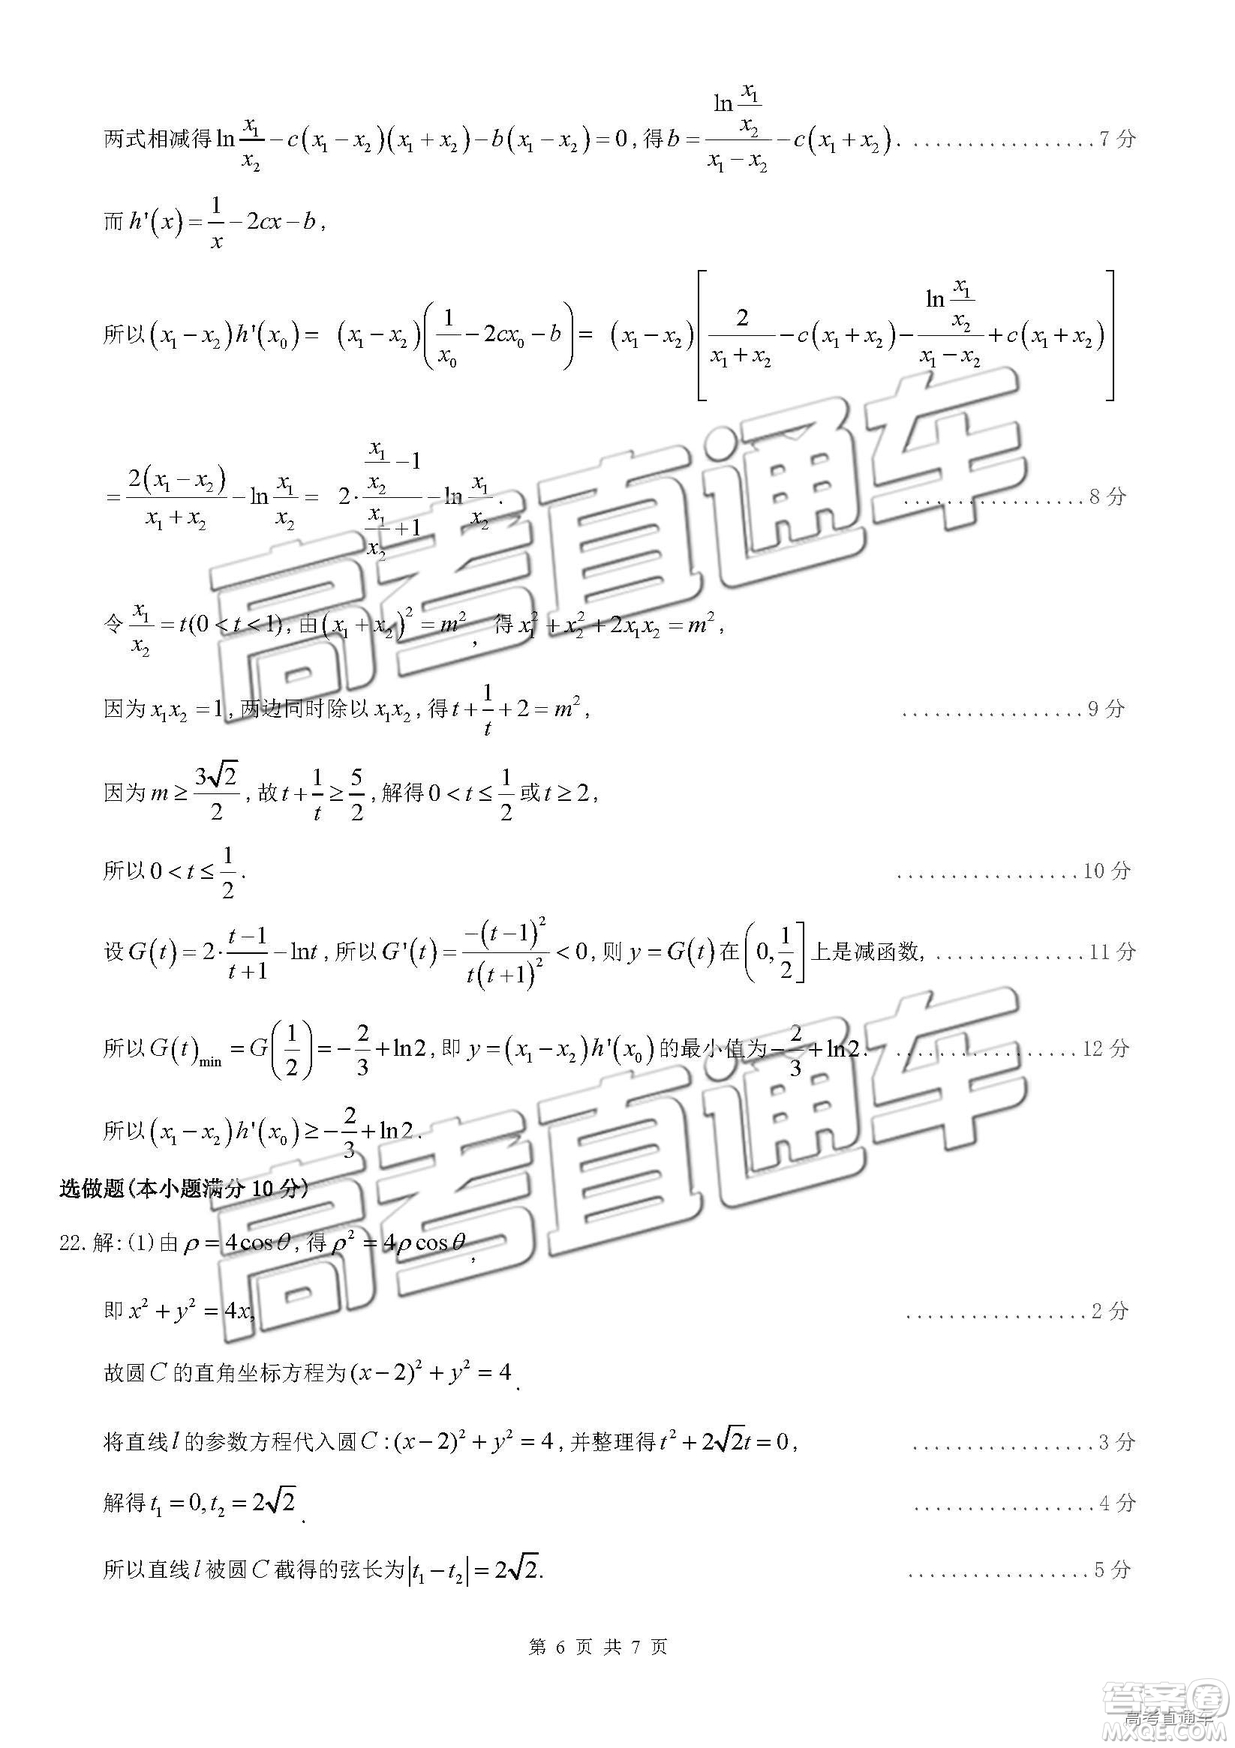 两式相减得 ln(x₁/x₂) − c(x₁ − x₂)(x₁ + x₂) − b(x₁ − x₂) = 0, 得 b = (ln(x₁/x₂))/(x₁ − x₂) − c(x₁ + x₂). .................7 分
而 h'(x) = 1/x − 2cx − b,
所以 (x₁ − x₂)h'(x₀) = (x₁ − x₂)(1/x₀ − 2cx₀ − b) = (x₁ − x₂)[2/(x₁ + x₂) − c(x₁ + x₂) − (ln(x₁/x₂))/(x₁ − x₂) + c(x₁ + x₂)]
= 2(x₁ − x₂)/(x₁ + x₂) − ln(x₁/x₂) = 2·(x₁/x₂ − 1)/(x₁/x₂ + 1) − ln(x₁/x₂). .................8 分
令 x₁/x₂ = t(0 < t < 1), 由 (x₁ + x₂)² = m², 得 x₁² + x₂² + 2x₁x₂ = m²,
因为 x₁x₂ = 1, 两边同时除以 x₁x₂, 得 t + 1/t + 2 = m², .................9 分
因为 m ≥ 3√2/2, 故 t + 1/t ≥ 5/2, 解得 0 < t ≤ 1/2 或 t ≥ 2,
所以 0 < t ≤ 1/2. .................10 分
设 G(t) = 2·(t − 1)/(t + 1) − ln t, 所以 G'(t) = −(t − 1)²/(t(t + 1)²) < 0, 则 y = G(t) 在 (0, 1/2] 上是减函数, .................11 分
所以 G(t)min = G(1/2) = −2/3 + ln2, 即 y = (x₁ − x₂)h'(x₀) 的最小值为 −2/3 + ln2. .................12 分
所以 (x₁ − x₂)h'(x₀) ≥ −2/3 + ln2.
选做题(本小题满分 10 分)
22. 解: (1) 由 ρ = 4cosθ, 得 ρ² = 4ρcosθ,
即 x² + y² = 4x, .................2 分
故圆 C 的直角坐标方程为 (x − 2)² + y² = 4.
将直线 l 的参数方程代入圆 C : (x − 2)² + y² = 4, 并整理得 t² + 2√2t = 0, .................3 分
解得 t₁ = 0, t₂ = 2√2. .................4 分
所以直线 l 被圆 C 截得的弦长为 |t₁ − t₂| = 2√2. .................5 分
第 6 页 共 7 页
高考直通车
高考直通车
答案圈
高考直通车
MXQE.COM